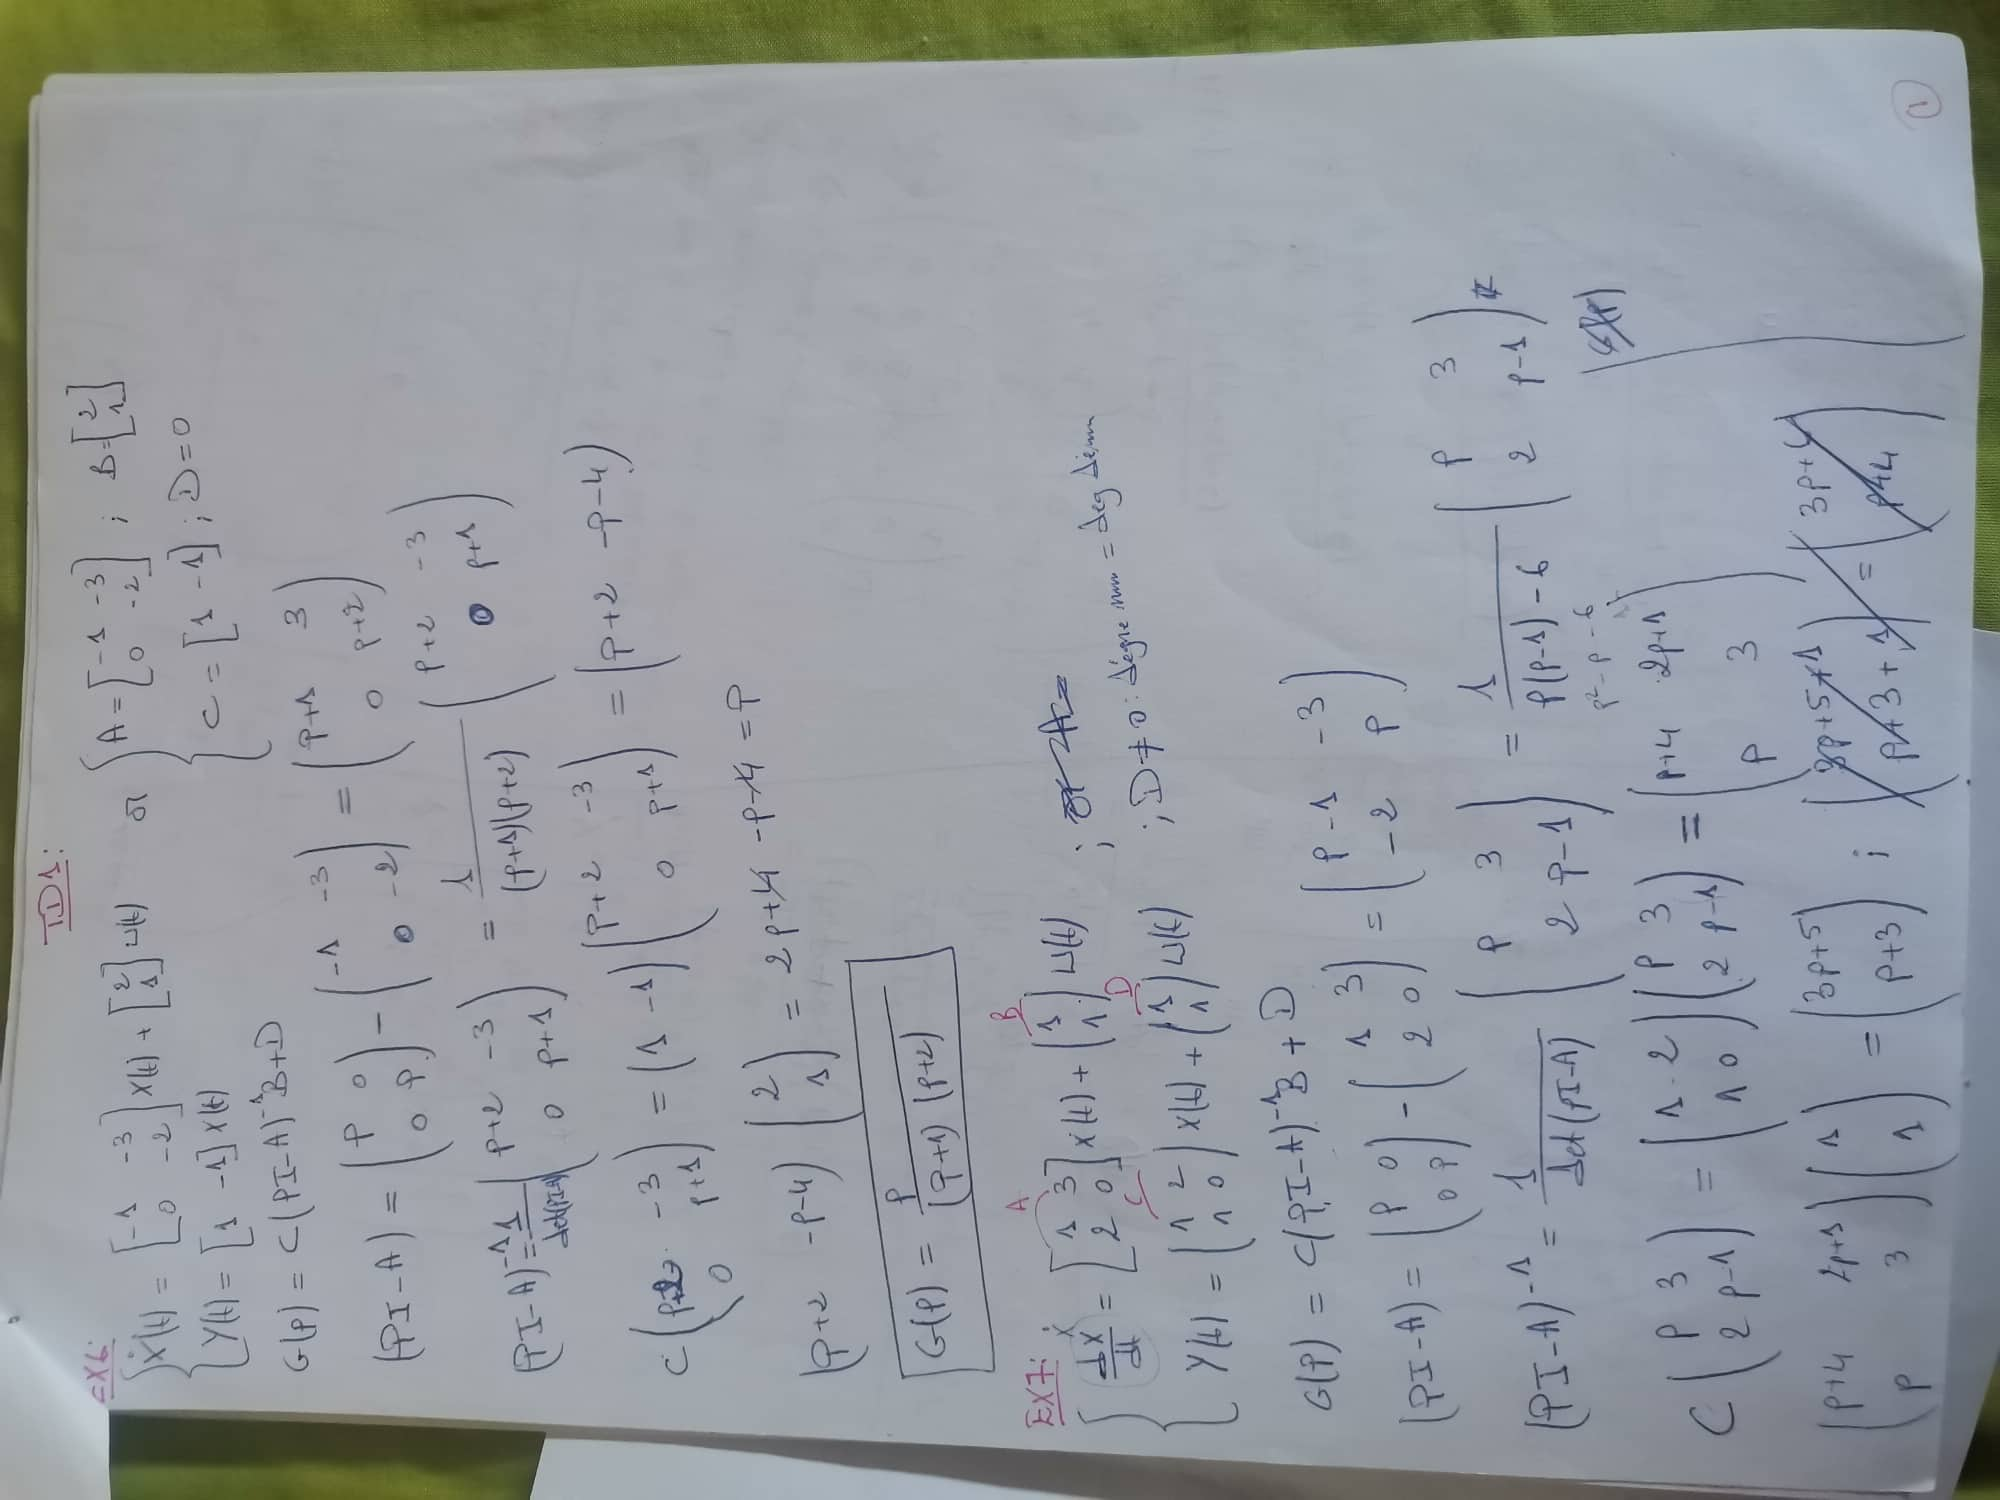 TD1:
EX6:
{ Ẋ(t) = [-1 -3; 0 -2] X(t) + [2; 1] u(t) où { A = [-1 -3; 0 -2] ; B = [2; 1]
{ Y(t) = [1 -1] X(t) { C = [1 -1] ; D = 0
G(p) = C(PI-A)⁻¹B+D
(PI-A) = (P 0; 0 P) - (-1 -3; 0 -2) = (P+1 3; 0 P+2)
(PI-A)⁻¹ = 1/det(PI-A) (P+2 -3; 0 P+1) = 1/((P+1)(P+2)) (P+2 -3; 0 P+1)
C (P+2 -3; 0 P+1) = (1 -1) (P+2 -3; 0 P+1) = (P+2 -P-4)
(P+2 -P-4) (2; 1) = 2P+4-P-4 = P
G(P) = P/((P+1)(P+2))
EX7:
{ dX/dt = Ẋ [1 3; 2 0] X(t) + (1; 1) u(t) ;
A B
{ Y(t) = (1 2; 1 0) X(t) + (1; 1) u(t) ; D≠0 : dégre num = deg dénm
C D
G(P) = C(PI-A)⁻¹B + D
(PI-A) = (P 0; 0 P) - (1 3; 2 0) = (P-1 -3; -2 P)
(PI-A)⁻¹ = 1/det(PI-A) (P 3; 2 P-1) = 1/(P(P-1)-6) (P 3; 2 P-1)
P²-P-6
C (P 3; 2 P-1) = (1 2; 1 0) (P 3; 2 P-1) = (P+4 2P+1; P 3)
(P+4 2P+1; P 3) (1; 1) = (3P+5; P+3) ; (3P+5+1; P+3+1) = (3P+4; P+4)
1